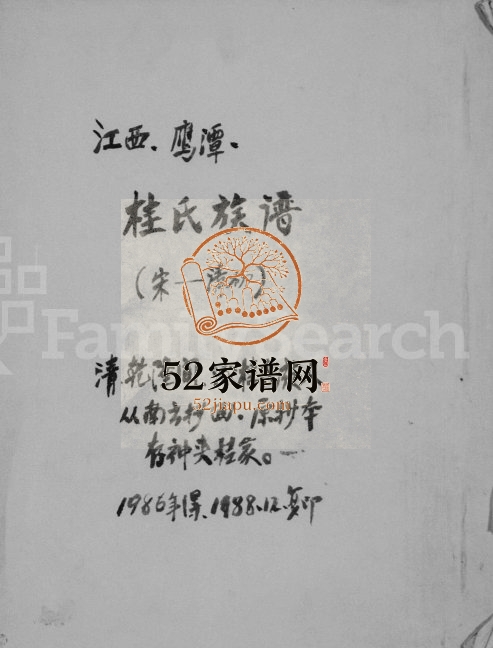 江西、鹰潭、
桂氏族谱
(宋一清
FamilySearch
清乾隆
52家谱网
52jiapu.com
从南 抄 原抄本
存神 桂家。
1986年 、1988.12.复印